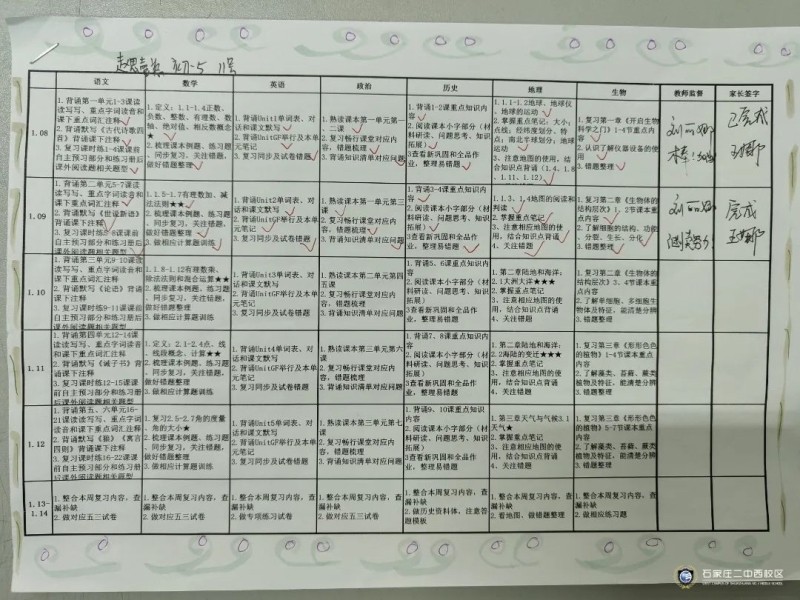 初一5
语文 数学 英语 政治 历史 地理 生物 教师监督 家长签字
1.08
1.背诵第一单元1-3课读
读写写、重点字词读音和
课下重点词汇注释
2.背诵默写《古代诗歌四
首》背诵课下注释
3.复习课时练1-4课课前
自主预习部分和练习册后
课外阅读题相关题型
1.定义：1.1-1.4正数、
负数、整数、有理数、数
轴、绝对值、相反数概念
★
2.梳理课本例题、练习题
、同步复习，关注错题，
做好错题整理
1.背诵Unit1单词表、对
话和课文默写
2.背诵UnitGF举行及本单
元笔记
3.复习同步及试卷错题
1.熟读课本第一单元第一
、二课
2.复习畅行课堂对应内
容，错题梳理
3.背诵知识清单对应问题
1.背诵1-2课重点知识内
容
2.阅读课本小字部分（材
料研读、问题思考、知识
拓展）
3查看新巩固和全品作
业，整理易错题
1.1.1-1.2地球、地球仪
、地球的运动
2.掌握重点笔记，大小；
点线；经纬度划分、特
点；南北半球划分；地球
运动
3、注意地图的使用，结
合知识点背诵（1.4、1.8
、1.11、1.12）
1.复习第一章《开启生物
科学之门》1-4节重点内
容
2.认识了解仪器设备的使
用
3.错题整理
刘丽娜
已完成
1.09
1.背诵第二单元5-7课读
读写写、重点字词读音和
课下重点词汇注释
2.背诵默写《世说新语》
背诵课下注释
3.复习课时练5-8课课前
自主预习部分和练习册后
课外阅读题相关题型
1.1.5-1.7有理数加、减
法法则★★
2.梳理课本例题、练习题
、同步复习，关注错题，
做好错题整理
3.做相应计算题训练
1.背诵Unit2单词表、对
话和课文默写
2.背诵UnitGF举行及本单
元笔记
3.复习同步及试卷错题
1.熟读课本第一单元第三
课
2.复习畅行课堂对应内
容，错题梳理
3.背诵知识清单对应问题
1.背诵3-4课重点知识内
容
2.阅读课本小字部分（材
料研读、问题思考、知识
拓展）
3查看新巩固和全品作
业，整理易错题
1.1.3，1.4地图的阅读和
判读
2.掌握重点笔记
3、注意相应地图的使
用，结合知识点背诵
4、关注错题
1.复习第二章《生物体的
结构层次》1、2节课本重
点内容
2.了解细胞的结构、功能
、分裂、生长、分化
3.错题整理
刘丽娜
完成
1.10
1.背诵第三单元9-10课读
读写写、重点字词读音和
课下重点词汇注释
2.背诵默写《论语》背诵
课下注释
3.复习课时练9-11课课前
自主预习部分和练习册后
课外阅读题相关题型
1.1.8-1.12有理数乘、
除法法则和混合运算★★
2.梳理课本例题、练习题
、同步复习，关注错题，
做好错题整理
3.做相应计算题训练
1.背诵Unit3单词表、对
话和课文默写
2.背诵UnitGF举行及本单
元笔记
3.复习同步及试卷错题
1.熟读课本第二单元第四
五课
2.复习畅行课堂对应内
容，错题梳理
3.背诵知识清单对应问题
1.背诵5、6课重点知识内
容
2.阅读课本小字部分（材
料研读、问题思考、知识
拓展）
3查看新巩固和全品作
业，整理易错题
1.第二章陆地和海洋：
2.1大洲大洋★★★
2.掌握重点笔记
3、注意相应地图的使
用，结合知识点背诵
4、关注错题
1.复习第二章《生物体的
结构层次》3、4节课本重
点内容
2.了解单细胞、多细胞生
物体及特征，能清楚分辨
3.错题整理
1.11
1.背诵第四单元12-14课
读读写写、重点字词读音
和课下重点词汇注释
2.背诵默写《诫子书》背
诵课下注释
3.复习课时练12-15课课
前自主预习部分和练习册
后课外阅读题相关题型
1.定义：2.1-2.4点、线
、线段概念、计算★★
2.梳理课本例题、练习题
、同步复习，关注错题，
做好错题整理
3.做相应计算题训练
1.背诵Unit4单词表、对
话和课文默写
2.背诵UnitGF举行及本单
元笔记
3.复习同步及试卷错题
1.熟读课本第三单元第六
课
2.复习畅行课堂对应内
容，错题梳理
3.背诵知识清单对应问题
1.背诵7、8课重点知识内
容
2.阅读课本小字部分（材
料研读、问题思考、知识
拓展）
3查看新巩固和全品作
业，整理易错题
1.第二章陆地和海洋：
2.2海陆的变迁★★★
2.掌握重点笔记
3、注意相应地图的使
用，结合知识点背诵
4、关注错题
1.复习第三章《形形色色
的植物》1-4节课本重点
内容
2.了解藻类、苔藓、蕨类
植物及特征，能清楚分辨
3.错题整理
1.12
1.背诵第五、六单元16-
21课读读写写、重点字词
读音和课下重点词汇注释
2.背诵默写《狼》《寓言
四则》背诵课下注释
3.复习课时练16-22课课
前自主预习部分和练习册
后课外阅读题相关题型
1.复习2.5-2.7角的度量
、角的大小★
2.梳理课本例题、练习题
、同步复习，关注错题，
做好错题整理
3.做相应计算题训练
1.背诵Unit5单词表、对
话和课文默写
2.背诵UnitGF举行及本单
元笔记
3.复习同步及试卷错题
1.熟读课本第三单元第七
课
2.复习畅行课堂对应内
容，错题梳理
3.背诵知识清单对应问题
1.背诵9、10课重点知识内
容
2.阅读课本小字部分（材
料研读、问题思考、知识
拓展）
3查看新巩固和全品作
业，整理易错题
1.第三章天气与气候3.1
天气★
2.掌握重点笔记
3、注意相应地图的使
用，结合知识点背诵
4、关注错题
1.复习第三章《形形色色
的植物》5-7节课本重点
内容
2.了解藻类、苔藓、蕨类
植物及特征，能清楚分辨
3.错题整理
1.13-
1.14
1.整合本周复习内容，查
漏补缺
2.做对应五三试卷
1.整合本周复习内容，查
漏补缺
2.做对应五三试卷
1.整合本周复习内容，查
漏补缺
2.做专项练习试卷
1.整合本周复习内容，查
漏补缺
2.做对应五三试卷
1.整合本周复习内容，查
漏补缺
2.做历史资料体，注意答
题模板
1.整合本周复习内容，查
漏补缺
2.看地图、做错题整理
1.整合本周复习内容，查
漏补缺
2.做相应练习题
石家庄二中西校区